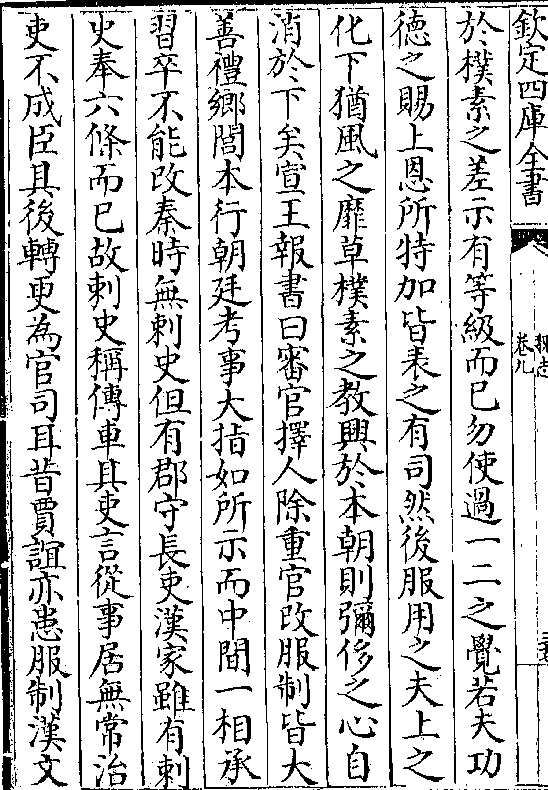 欽定四庫全書
魏志
卷九
於樸素之差示有等級而已勿使過一二之覺若夫功
德之賜上恩所特加皆表之有司然後服用之夫上之
化下猶風之靡草樸素之教興於本朝則彌侈之心自
消於下矣宣王報書曰審官擇人除重官改服制皆大
善禮鄉閭本行朝廷考事大指如所示而中間一相承
習卒不能改秦時無刺史但有郡守長吏漢家雖有刺
史奉六條而已故刺史稱傳車其吏言從事居無常治
吏不成臣其後轉更為官司耳昔賈誼亦患服制漢文